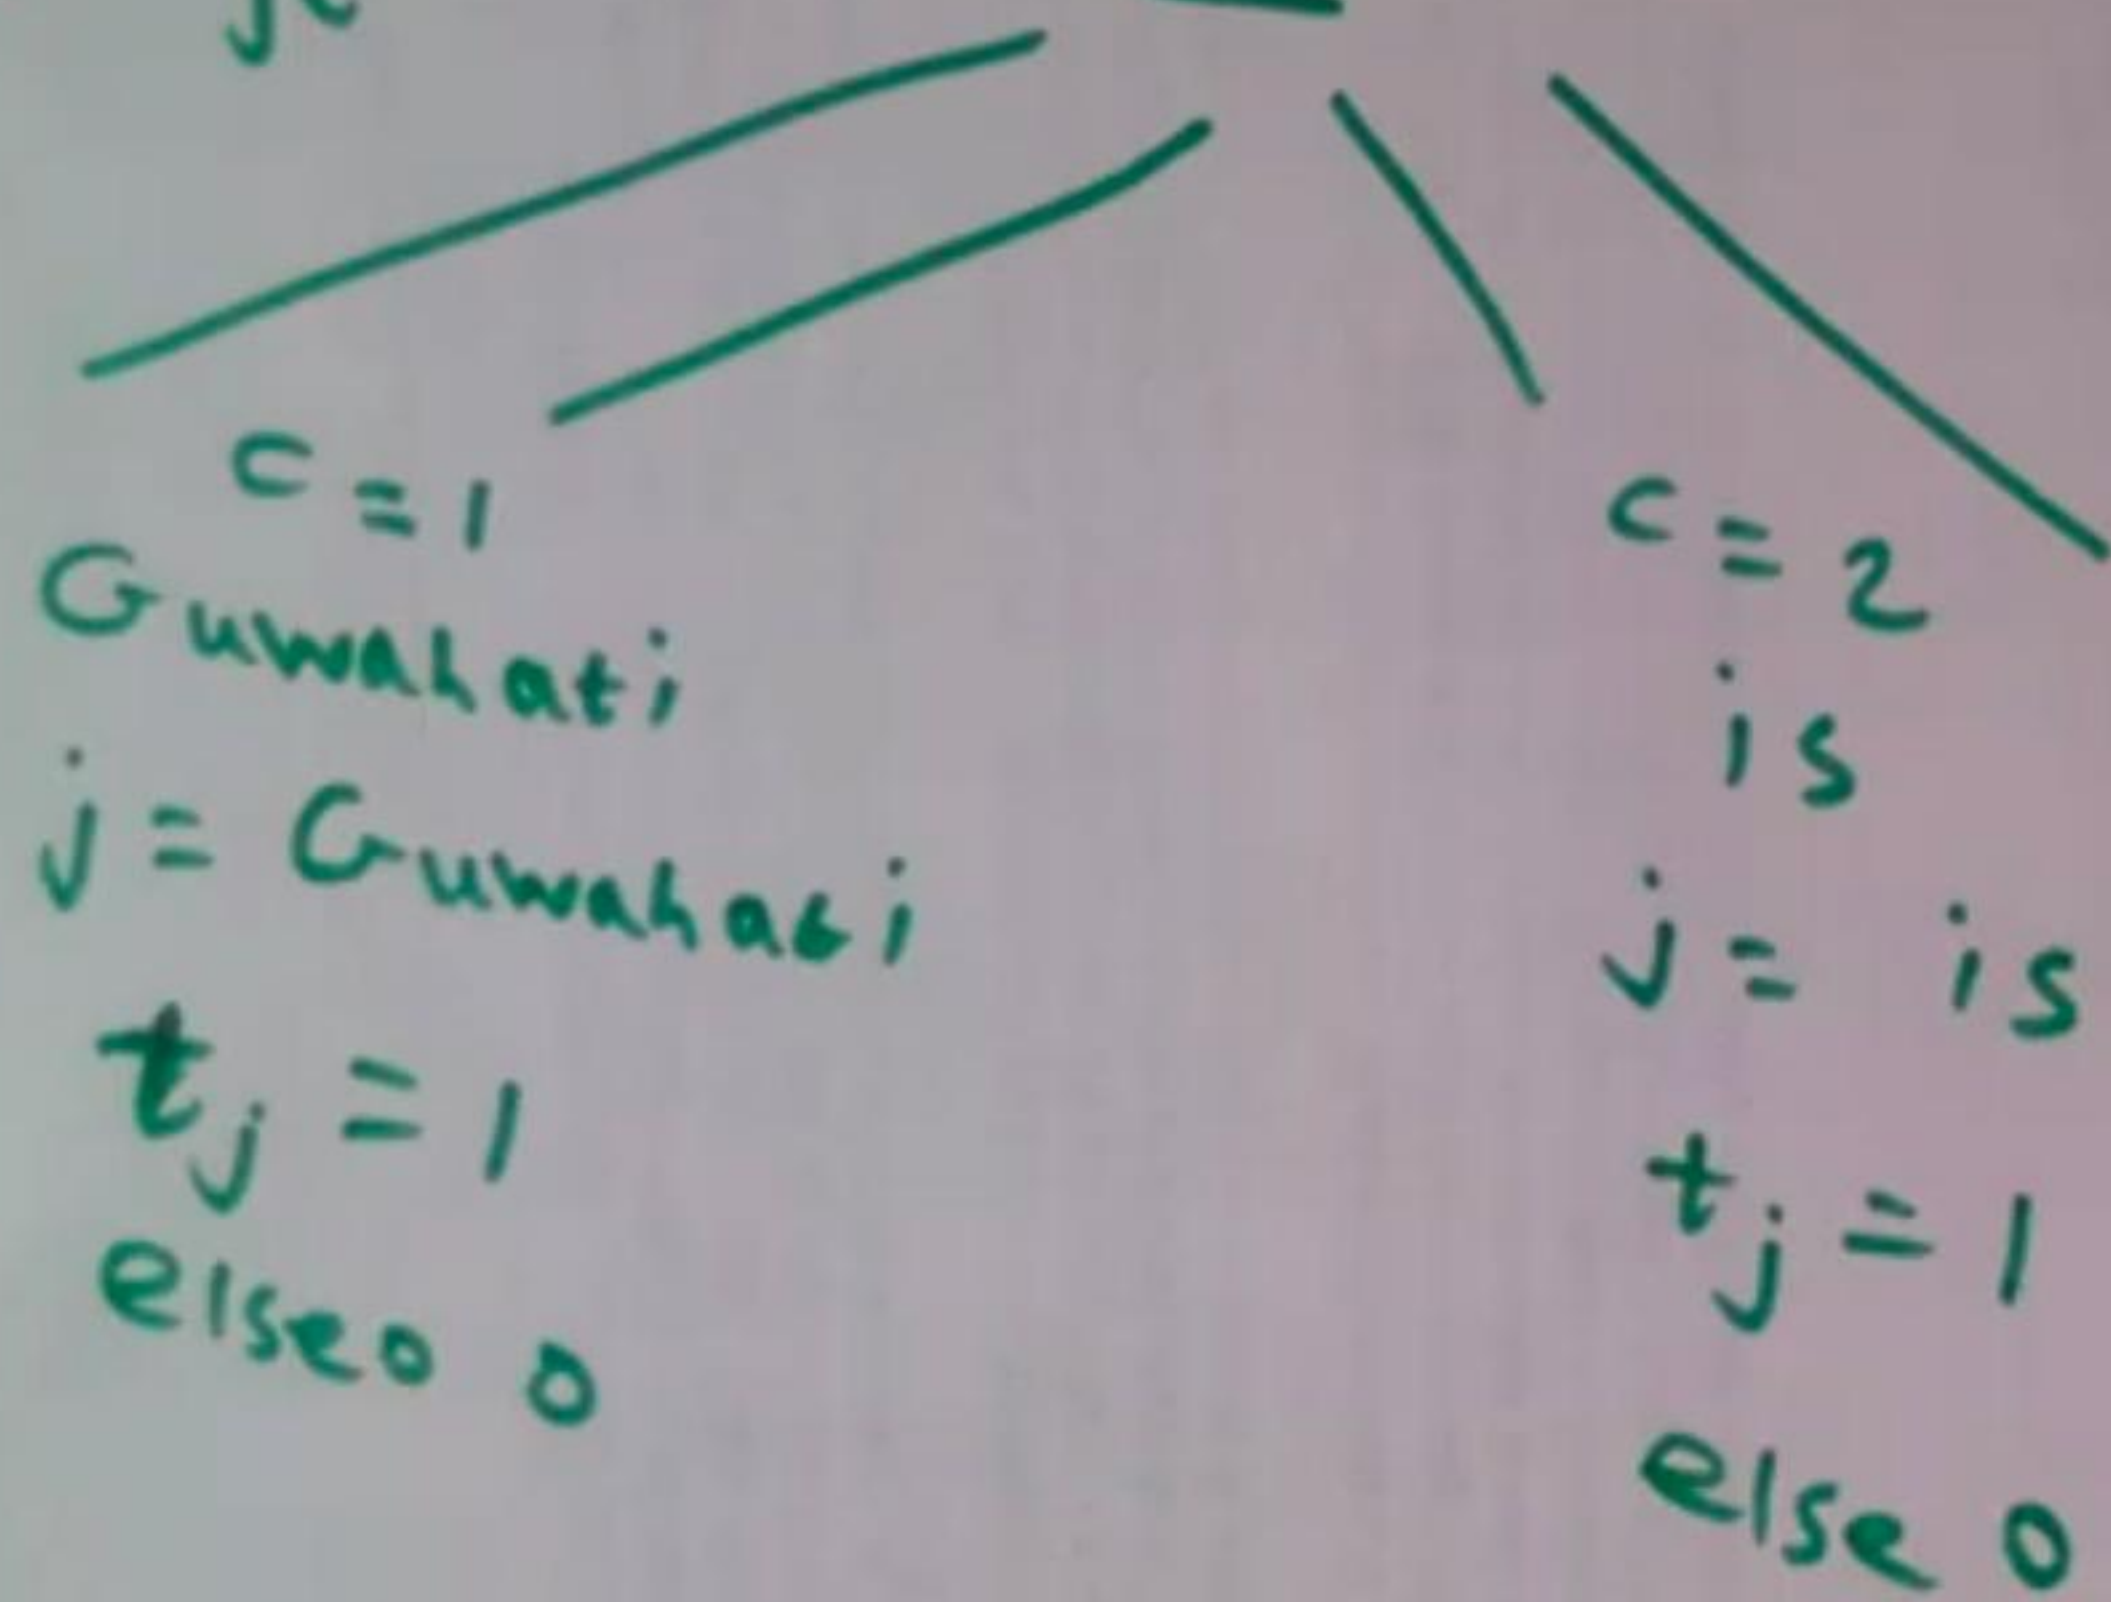 c = 1
Guwahati
j = Guwahati
tj = 1
elseo 0
c = 2
is
j = is
tj = 1
else 0